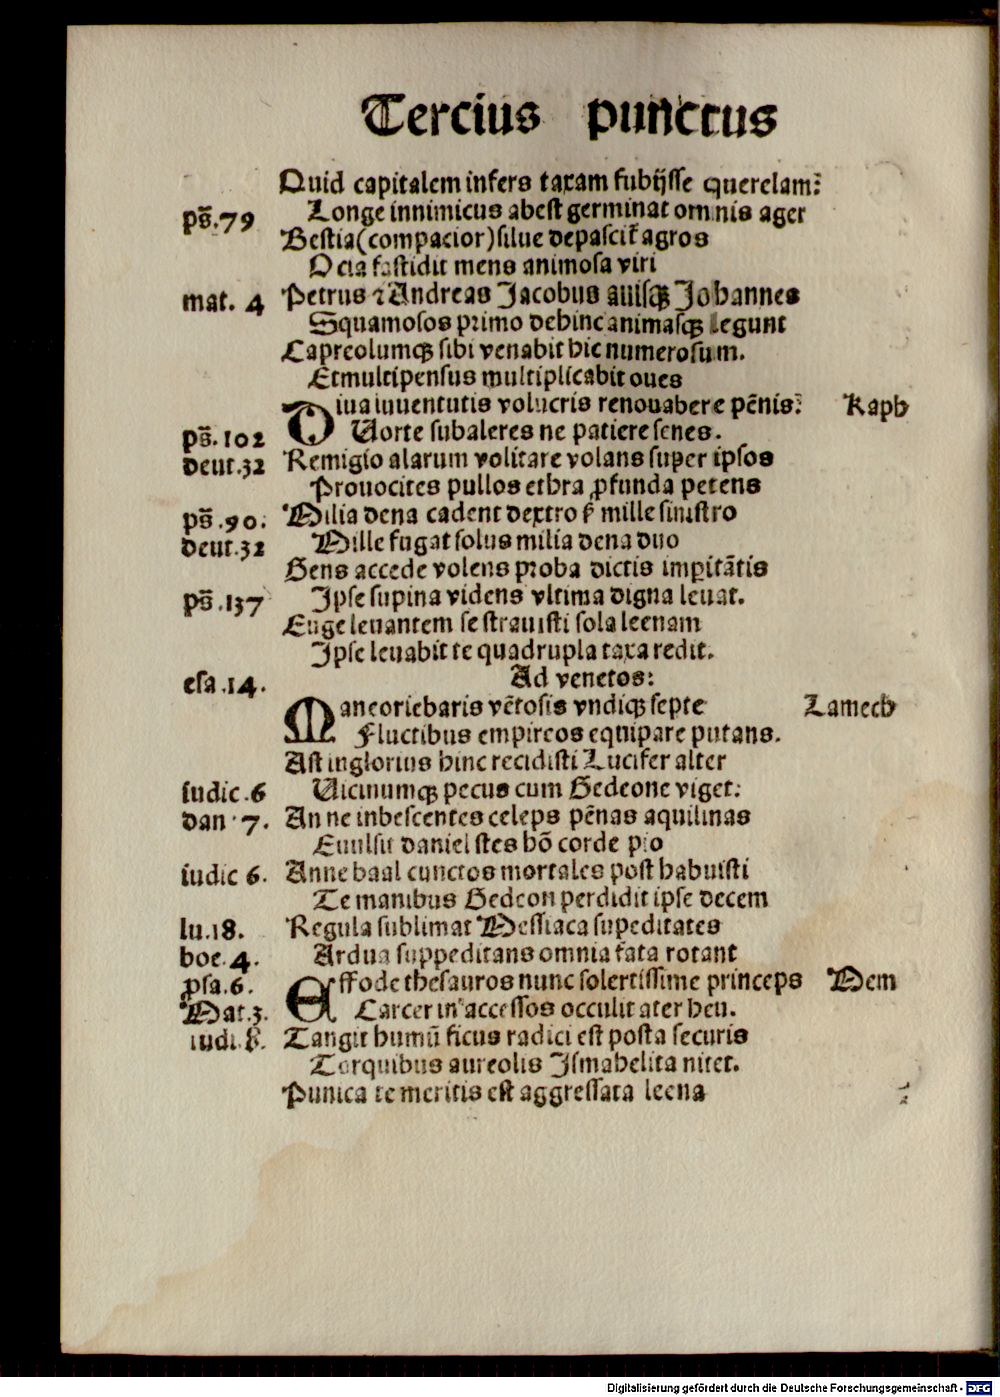 Tercius punctus
Quid capitalem infers taxam subijsse querelam:
Longe innimicus abest germinat omnis ager
ps̄.79
Bestia(compacior)silue depascit᷑ agros
Ocia fastidit mens animosa viri
mat. 4 Petrus ⁊ Andreas Jacobus auisqꝫ Johannes
Squamosos primo dehinc animasqꝫ legunt
Capreolumqꝫ sibi venabit hic numerosum.
Et multipensus multiplicabit oues
Diua iuuentutis volucris renouabere pēnis: Raph
ps̄.102 Uorte subaleres ne patiere senes.
deut.32 Remigio alarum volitare volans super ipsos
Prouocites pullos ethra ꝓfunda petens
ps̄.90. Milia dena cadent dextro s̄ mille sinistro
deut.32 Mille fugat solus milia dena duo
Gens accede volens proba dictis imꝑitātis
ps̄.137 Ipse supina videns vltima digna leuat.
Euge leuantem se strauisti sola leenam
Ipse leuabit te quadrupla taxa redit.
Ad venetos:
esa.14.
Maneoriebaris vētosis vndiqꝫ septe Lamech
Fluctibus empireos equipare putans.
Ast inglorius hinc recidisti Lucifer alter
iudic.6 Uicinumqꝫ pecus cum Gedeone viget:
dan 7. An ne inhescentes celeps pēnas aquilinas
Euulsit daniel stes hō corde pio
iudic 6. Anne baal cunctos mortales post habuisti
Te manibus Gedeon perdidit ipse decem
lu.18. Regula sublimat Messiaca supeditates
boe.4. Ardua suppeditans omnia fata rotant
psa.6. Effode thesauros nunc solertissime princeps Dem
Mat.3. Carcer in accessos occulit ater heu.
iudi.8. Tangit humū ficus radici est posta securis
Torquibus aureolis Ismahelita nitet.
Punica te meritis est aggressata leena
Digitalisierung gefördert durch die Deutsche Forschungsgemeinschaft - DFG